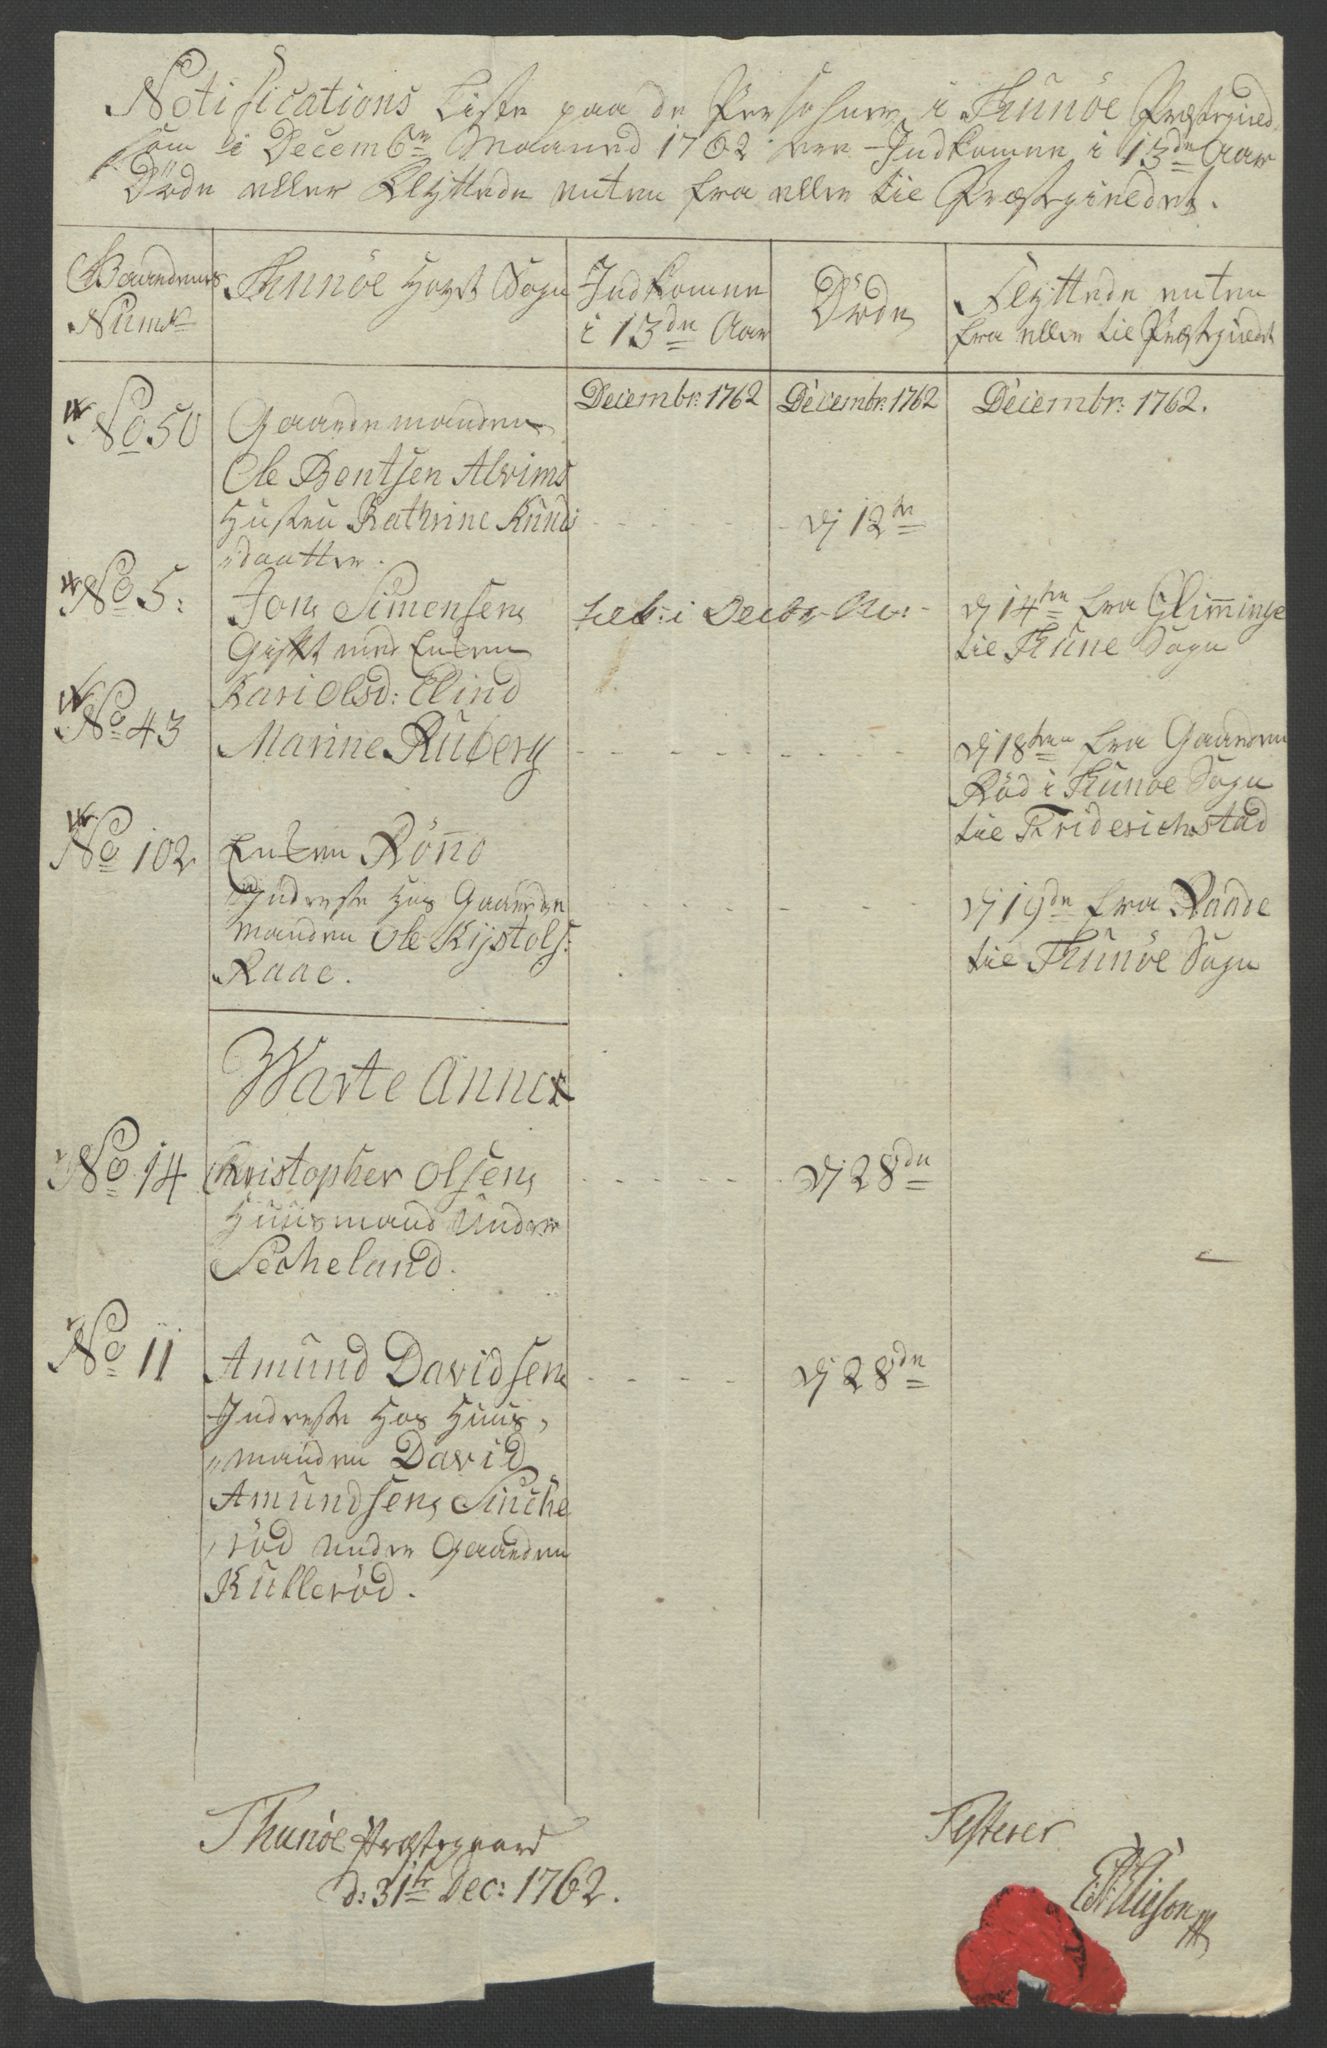 Notifications Liste paa de Persohner i Thunöe Præstegield
som i Decembr Maaned 1762 ere Indkomne i 13de Aar
Döde eller Flÿttede enten fra eller til Præstegieldet.
Gaardenes
Numr
Thunöe Hovet Sogn
Indkomne
i 13de Aar
Döde
Flÿttede enten
fra eller til Præstegieldet
Decembr: 1762
Decembr: 1762
Decembr: 1762.
No 50
Gaardemanden
Ole Bentsen Alvims
Hustru Kathrine Knuds
daatter.
dj 12te
No 5:
Jon Simensen
Gift med Enken
Kari Olsd: Elind
dj 14de fra Glimminge
til Thune Sogn
No 43
Marine Ruberg
dj 18de fra Gaarden
Röd i Thunöe Sogn
til Friderichstad
No 102
Enken Rönno
Inderste hos Gaarde
manden Ole Kijstols:
Raae.
dj 19de fra Raade
til Thunöe Sogn
Warte Annex
No 14
Christopher Olsen
Huusmand under
Secheland.
dj 28de
No 11
Amund Davidsen
Inderste hos Huus
manden David
Amundsen Sinche
röd under Gaarden
Kulleröd.
dj 28de
Thunöe Præstegaard
d: 31te Dec: 1762.
Testerer